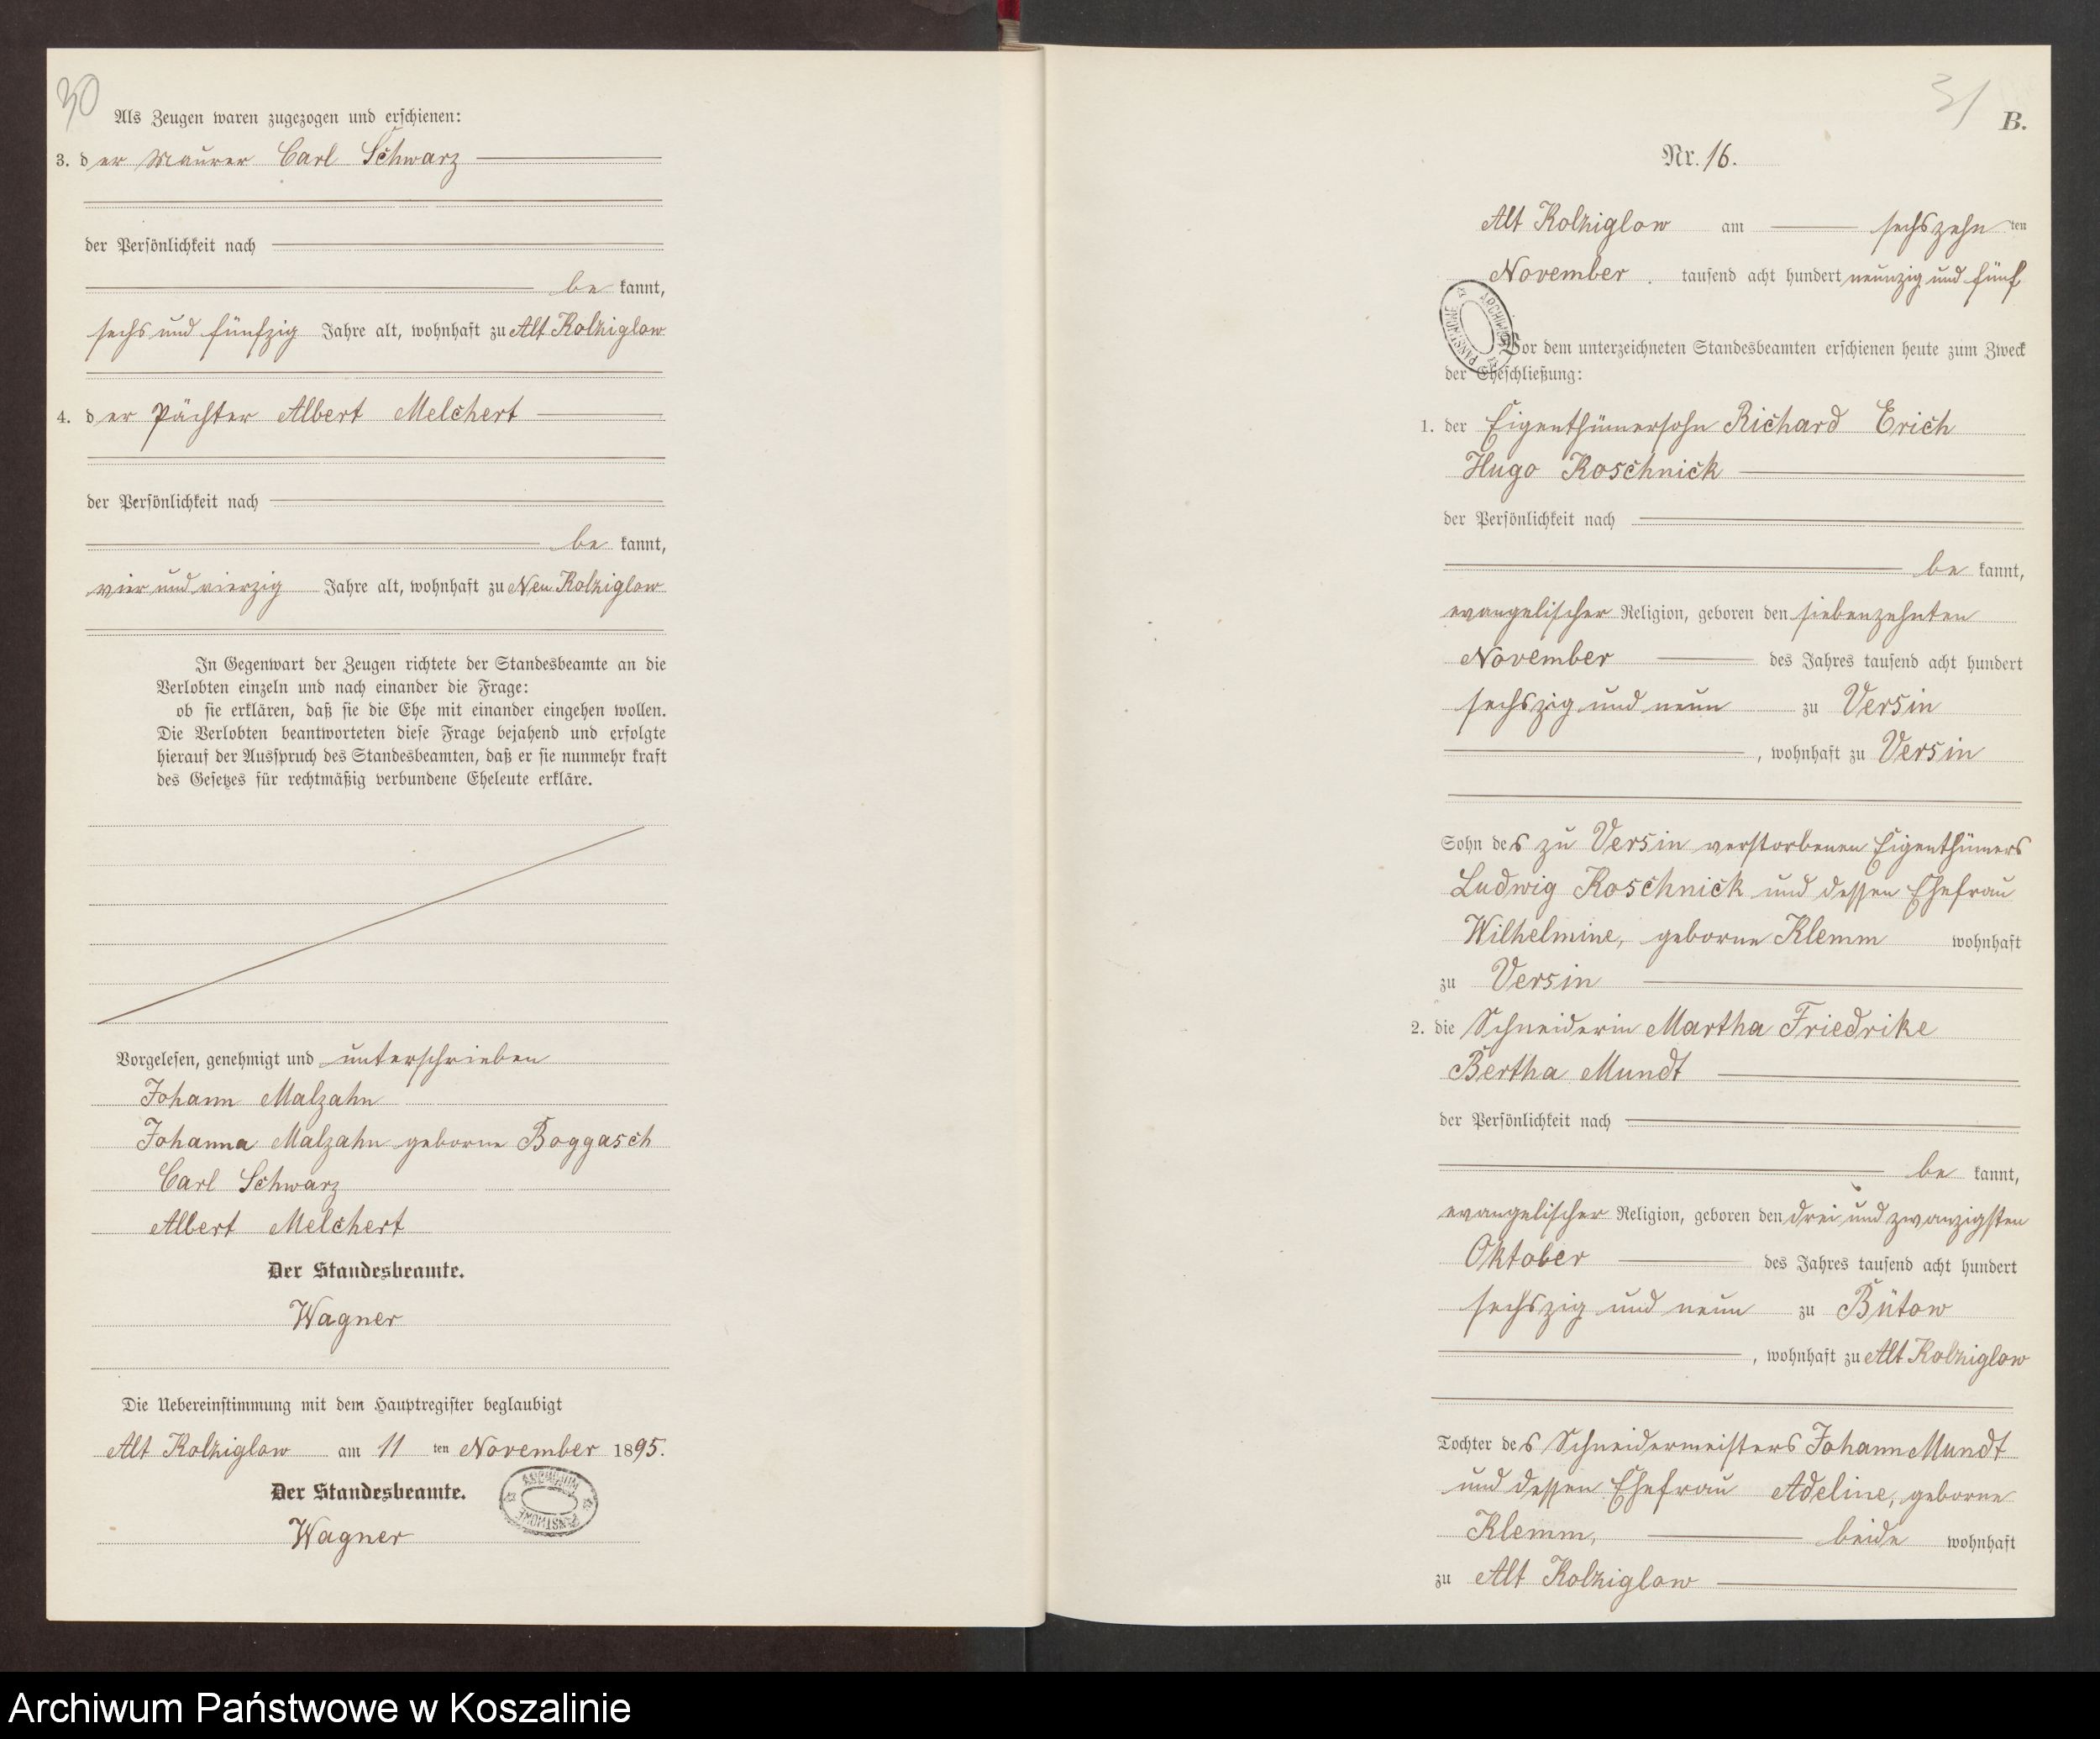 30
Als Zeugen waren zugezogen und erschienen:
3. der Maurer Carl Schwarz
der Persönlichkeit nach
be kannt,
sechs und fünfzig Jahre alt, wohnhaft zu Alt Kolziglow
4. der Pächter Albert Melchert
der Persönlichkeit nach
be kannt,
vier und vierzig Jahre alt, wohnhaft zu Neu Kolziglow
In Gegenwart der Zeugen richtete der Standesbeamte an die
Verlobten einzeln und nach einander die Frage:
ob sie erklären, daß sie die Ehe mit einander eingehen wollen.
Die Verlobten beantworteten diese Frage bejahend und erfolgte
hierauf der Ausspruch des Standesbeamten, daß er sie nunmehr kraft
des Gesetzes für rechtmäßig verbundene Eheleute erkläre.
Vorgelesen, genehmigt und unterschrieben
Johann Malzahn
Johanna Malzahn geborne Boggasch
Carl Schwarz
Albert Melchert
Der Standesbeamte.
Wagner
Die Uebereinstimmung mit dem Hauptregister beglaubigt
Alt Kolziglow am 11 ten November 1895.
Der Standesbeamte.
ARCHIWUM PAŃSTWOWE
Wagner
31
B.
Nr. 16.
Alt Kolziglow am sechszehn ten
November . tausend acht hundert neunzig und fünf
ARCHIWUM PAŃSTWOWE
Vor dem unterzeichneten Standesbeamten erschienen heute zum Zweck
der Eheschließung:
1. der Eigenthümersohn Richard Erich
Hugo Koschnick
der Persönlichkeit nach
be kannt,
evangelischer Religion, geboren den siebenzehnten
November des Jahres tausend acht hundert
sechszig und neun zu Versin
, wohnhaft zu Versin
Sohn des zu Versin verstorbenen Eigenthümers
Ludwig Koschnick und dessen Ehefrau
Wilhelmine, geborne Klemm wohnhaft
zu Versin
2. die Schneiderin Martha Friedrike
Bertha Mundt
der Persönlichkeit nach
be kannt,
evangelischer Religion, geboren den drei und zwanzigsten
Oktober des Jahres tausend acht hundert
sechszig und neun zu Bütow
, wohnhaft zu Alt Kolziglow
Tochter des Schneidermeisters Johann Mundt
und dessen Ehefrau Adeline, geborne
Klemm, beide wohnhaft
zu Alt Kolziglow
Archiwum Państwowe w Koszalinie